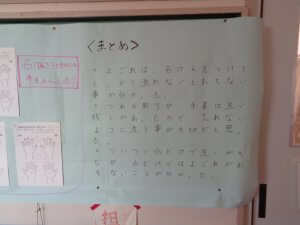 <まとめ>
・よごれは、石けんをつけて
しっかり洗わないとおちない
事が分かった。
・つめの周りや、手首は洗い
残しがあったので、忘れない
ように洗う事が大切だと思った。
・ついつい水だけで洗いがち
だが、水だけではよごれがお
ちないことが分かった。